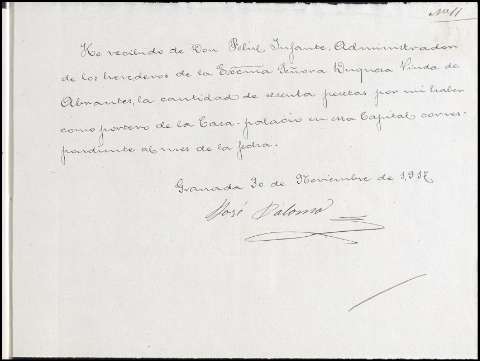 Nº 11
He recibido de Don Felix Infante, Administrador
de los herederos de la Excma Señora Duquesa Viuda de
Abrantes, la cantidad de sesenta pesetas por mi haber
como portero de la Casa-palacio en esta Capital corres-
pondiente al mes de la fecha.
Granada 30 de Noviembre de 1,917
José Palomo